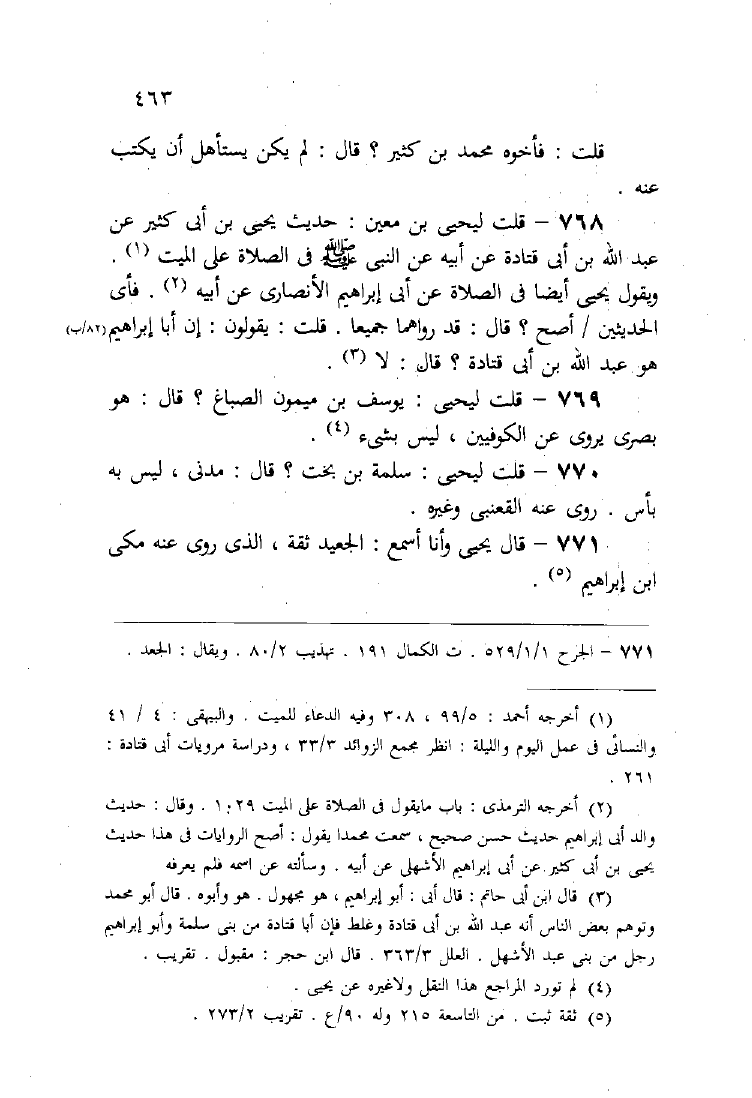 ٤٦٣
قلت : فأخوه محمد بن كثير ؟ قال : لم يكن يستأهل أن يكتب
عنه .
٧٦٨ – قلت ليحيى بن معين : حديث يحيى بن أبى كثير عن
عبد الله بن أبى قتادة عن أبيه عن النبى ﷺ فى الصلاة على الميت (١) .
ويقول يحيى أيضا فى الصلاة عن أبى إبراهيم الأنصارى عن أبيه (٢) . فأى
الحديثين / أصح ؟ قال : قد رواهما جميعا . قلت : يقولون : إن أبا إبراهيم (٨٢/ب)
هو عبد الله بن أبى قتادة ؟ قال : لا (٣) .
٧٦٩ – قلت ليحيى : يوسف بن ميمون الصباغ ؟ قال : هو
بصرى يروى عن الكوفيين ، ليس بشىء (٤) .
٧٧٠ – قلت ليحيى : سلمة بن بخت ؟ قال : مدنى ، ليس به
بأس . روى عنه القعنبى وغيره .
٧٧١ – قال يحيى وأنا أسمع : الجعيد ثقة ، الذى روى عنه مكى
ابن إبراهيم (٥) .
٧٧١ – الجرح ٥٢٩/١/١ . ت الكمال ١٩١ . تهذيب ٨٠/٢ . ويقال : الجعد .
(١) أخرجه أحمد : ٩٩/٥ ، ٣٠٨ وفيه الدعاء للميت . والبيهقى : ٤ / ٤١
والنسائى فى عمل اليوم والليلة : انظر مجمع الزوائد ٣٣/٣ ، ودراسة مرويات أبى قتادة :
٢٦١ .
(٢) أخرجه الترمذى : باب مايقول فى الصلاة على الميت ١٠٢٩ . وقال : حديث
والد أبى إبراهيم حديث حسن صحيح ، سمعت محمدا يقول : أصح الروايات فى هذا حديث
يحيى بن أبى كثير عن أبى إبراهيم الأشهلى عن أبيه . وسألته عن اسمه فلم يعرفه
(٣) قال ابن أبى حاتم : قال أبى : أبو إبراهيم ، هو مجهول . هو وأبوه . قال أبو محمد
وتوهم بعض الناس أنه عبد الله بن أبى قتادة وغلط فإن أبا قتادة من بنى سلمة وأبو إبراهيم
رجل من بنى عبد الأشهل . العلل ٣٦٣/٣ . قال ابن حجر : مقبول . تقريب .
(٤) لم تورد المراجع هذا النقل ولاغيره عن يحيى .
(٥) ثقة ثبت . من التاسعة ٢١٥ وله ٩٠/ع . تقريب ٢٧٣/٢ .